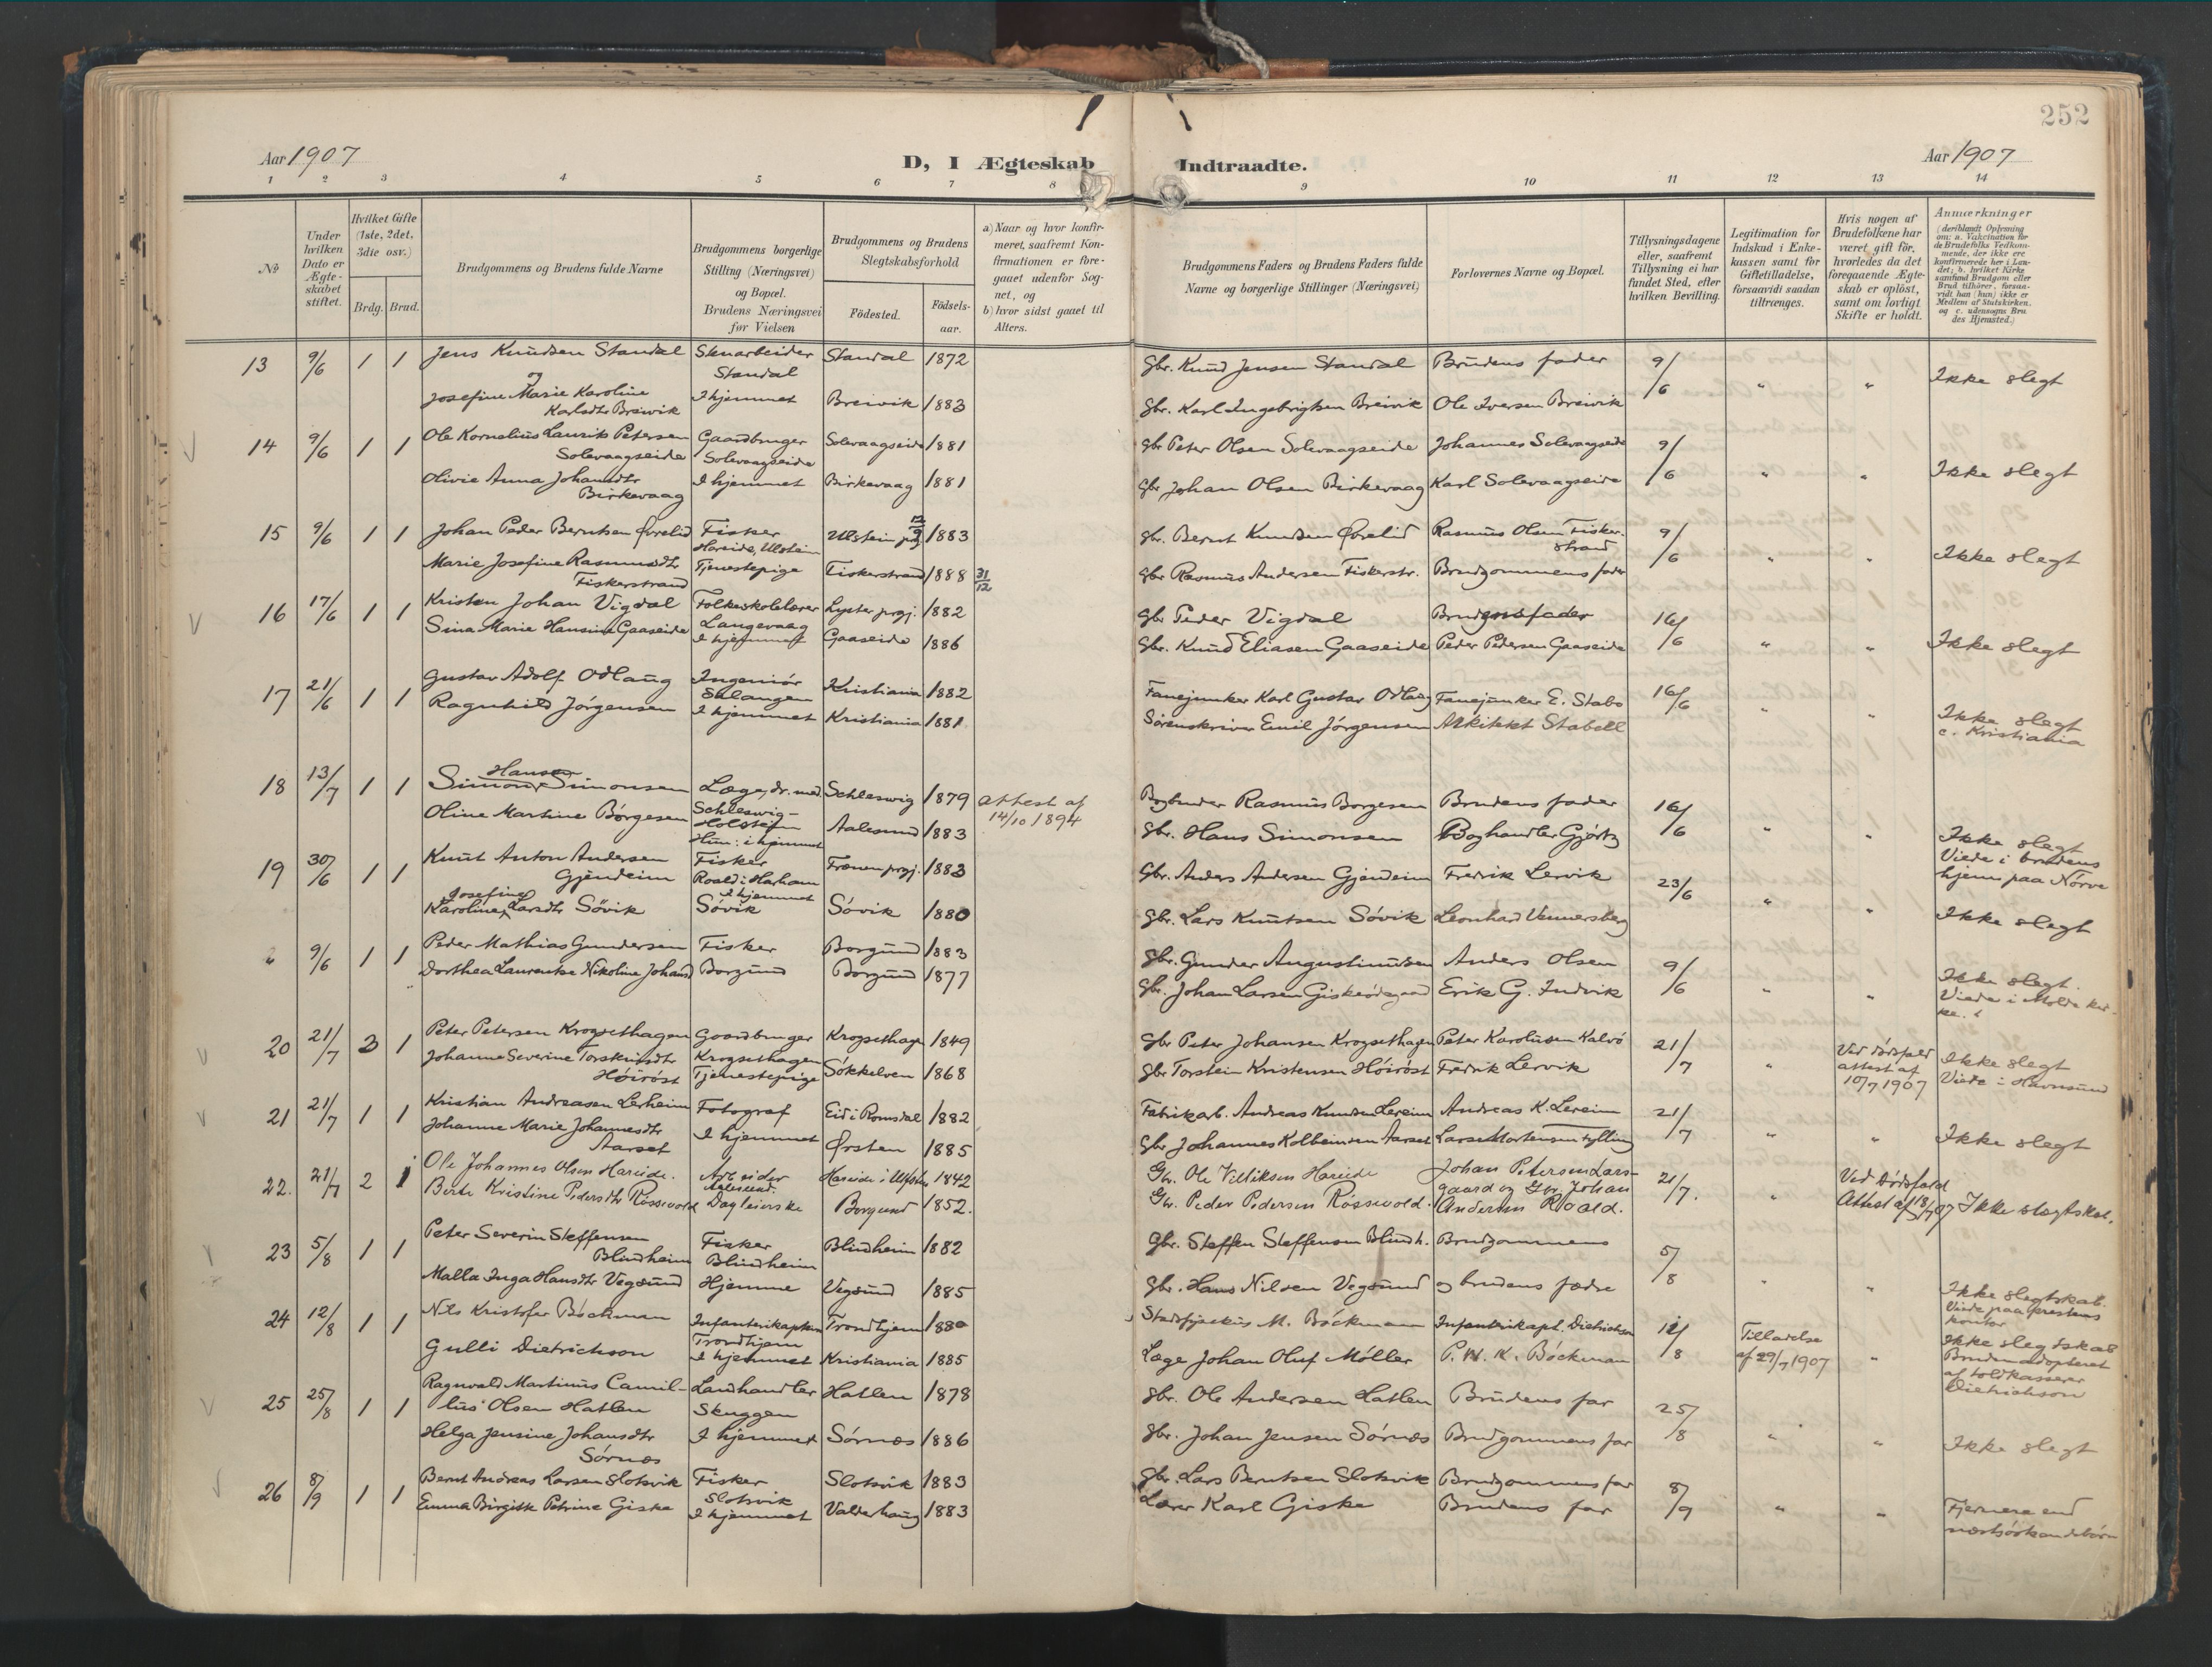 252
Aar 1907
D, I Ægteskab Indtraadte.
Aar 1907
1 2 3 4 5 6 7 8 9 10 11 12 13 14
No
Under hvilken Dato er Ægteskabet stiftet.
Hvilket Gifte (1ste, 2det, 3die osv.)
Brdg. Brud.
Brudgommens og Brudens fulde Navne
Brudgommens borgerlige Stilling (Næringsvei) og Bopæl. Brudens Næringsvei før Vielsen
Brudgommens og Brudens Slegtskabsforhold
Födested. Födsels-aar.
a) Naar og hvor konfirmeret, saafremt Konfirmationen er foregaaet udenfor Sognet, og
b) hvor sidst gaaet til Alters.
Brudgommens Faders og Brudens Faders fulde Navne og borgerlige Stillinger (Næringsvei)
Forlovernes Navne og Bopæl.
Tillysningsdagene eller, saafremt Tillysning ei har fundet Sted, efter hvilken Bevilling.
Legitimation for Indskud i Enkekassen samt for Giftetilladelse, forsaavidt saadan tiltrænges.
Hvis nogen af Brudefolkene har været gift för, hvorledes da det foregaaende Ægteskab er oplöst, samt om lovligt Skifte er holdt.
Anmærkninger (deriblandt Oplysning om: a. Vakcination for de Brudefolks Vedkommende, der ikke ere konfirmerede her i Landet; b. hvilket Kirkesamfund Brudgom eller Brud tilhörer, forsaavidt han (hun) ikke er Medlem af Statskirken. og c. udensogns Brudes Hjemsted.)
13 9/6 1 1 Jens Knudsen Standal Stenarbeider Standal 1872 Gbr. Knud Jensen Standal Brudens fader 9/6 " " Ikke slegt
og Standal
Josefine Marie Karoline I hjemmet Breivik 1883 Gbr. Karl Ingebrigtsen Breivik Ole Iversen Breivik
Karlsdtr Breivik
14 9/6 1 1 Ole Kornelius Laurits Petersen Gaardbruger Solevaagseide 1881 Gbr Peter Olsen Solevaagseide Johannes Solevaagseide 9/6 " " Ikke slegt
Solevaagseide Solevaagseide
Olivie Anna Johansdtr I hjemmet Birkevaag 1881 Gbr Johan Olsen Birkevaag Karl Solevaagseide
Birkevaag
15 9/6 1 1 Johan Peder Berntsen Øvrelid Fisker Ulstein prgj 1883 gbr. Bernt Knudsen Øvrelid Rasmus Olsen Fiskerstrand 9/6 " " Ikke slegt
Hareide, Ulstein
Marie Josefine Rasmusdtr Tjenestepige Fiskerstrand 1888 31/12 Gbr Rasmus Andersen Fiskerstr. Brudgommens fader
Fiskerstrand
16 17/6 1 1 Kristen Johan Vigdal Folkeskolelærer Lyster prgj. 1882 Gbr Peder Vigdal Brudgoms fader 16/6 " " Ikke slegt
Langevaag
Sina Marie Hansine Gaaseide I hjemmet Gaaseide 1886 Gbr. Knud Eliasen Gaaseide Peder Pedersen Gaaseide
17 21/6 1 1 Gustav Adolf Odlaug Ingeniør Kristiania 1882 Fanejunker Karl Gustav Odlaug Fanejunker E. Stabo 16/6 " " Ikke slegt
Salangen
Ragnhild Jörgensen I hjemmet Kristiania 1881 Sorenskriver Emil Jörgensen Arkitekt Stabell c. Kristiania
18 13/7 1 1 Simon Hansen Simonsen Læge, dr. med. Schleswig 1879 attest af 14/10 1894 Bogbinder Rasmus Borgesen Brudens fader 16/6 " " Ikke slegt
Schleswig-Holstein
Oline Martine Börgesen Hun: i hjemmet Aalesund 1883 Gbr. Hans Simonsen Boghandler Gjörtz Viede i brudens hjem paa Nörve
19 30/6 1 1 Knut Anton Andersen Fisker Frænen prgj. 1883 Gbr. Anders Andersen Gjendeim Fredrik Lervik 23/6 " " Ikke slegt
Gjendeim Roald i Harham
Karoline Josefine Larsdtr Sövik I hjemmet Sövik Sövik 1880 Gbr. Lars Knutsen Sövik Leonhard Vennersberg
" 9/6 1 1 Peder Mathias Gundersen Fisker Borgund 1883 Gbr. Gunder Augustinussen Anders Olsen 9/6 " " Ikke slegt.
Dorthea Laurentse Nikoline Johansd Borgund Borgund 1877 Gbr. Johan Larsen Giskeödegaard Erik G. Indvik Viede i Molde kirke.
20 21/7 3 1 Peter Petersen Krogsethagen Gaardbruger Krogsethagen 1849 Gbr Peter Johansen Krogsethagen Peter Karolusen Kalvö 21/7 " Ved dödsfald attest af 10/7 1907 Ikke slegt
Johanne Severine Torsteinsdtr Krogsethagen
Höiröst Tjenestepige Sökkelven 1868 Gbr Torstein Kristensen Höiröst Fredrik Lervik Viede i Havnsund
21 21/7 1 1 Kristian Andreasen Lerheim Fotograf Eid i Romsdal 1882 Fabrikarb. Andreas Knudsen Lereim Andreas K. Lereim 21/7 " " Ikke slegt
Johanne Marie Johannesdtr I hjemmet Ørsten 1885 Gbr Johannes Kolbeinsen Aarset Lars Mortensen Fylling
Aarset
22. 21/7 2 1 Ole Johannes Olsen Hareide. Arbeider Hareide i Ulfsten 1842 Gbr. Ole Hareide Johan Petersen Larsgaard og Gbr. Johan Andersen Roald. 21/7. " Ved Dødsfald Attest af 18/7 07 Ikke slegtskab.
Aalesund.
Berte Kristine Pedersdtr Røssevold Dagleierske Borgund 1852. Gbr. Peder Pedersen Røssevold.
23 5/8 1 1 Peter Severin Steffensen Fisker Blindheim 1882 Gbr. Steffen Steffensen Blindh. Brudgommens 5/8 " " Ikke slegtskab.
Blindheim Blindheim
Malla Inga Hansdtr Vegsund Hjemme Vegsund 1885 Gbr. Hans Nilsen Vegsund og brudens fædre Viede paa prestens kontor
24 12/8 1 1 Nils Kristofer Böckman Infanterikaptein Trondhjem 1880 Stadsfysikus M. Böckmann Infanterikapt. Dietrichson 12/8 Tilladelse af 29/7 1907 " Ikke slegtskab
Trondhjem
Gulli Dietrichson I hjemmet Kristiania 1885 Læge Johan Oluf Møller P. W. K. Böckman Bruden adopteret af toldkasserer Dietrichson
25 25/8 1 1 Ragnvald Martinus Camillus Olsen Hatlen Landhandler Hatlen 1878 Gbr. Ole Andersen Hatlen Brudens far 25/8 " " Ikke slegt
Skuggen
Helga Jensine Johansdtr I hjemmet Sörnes 1886 Gbr. Johan Jensen Sörnes Brudgommens far
Sörnes
26 8/9 1 1 Bernt Andreas Larsen Slotsvik Fisker Slotsvik 1883 Gbr Lars Berntsen Slotsvik Brudgommens far 8/9 " " Fjernere end næstsöskendebörn
Slotsvik
Emma Birgitte Petrine Giske I hjemmet Valderhaug 1883 Lærer Karl Giske Brudens far